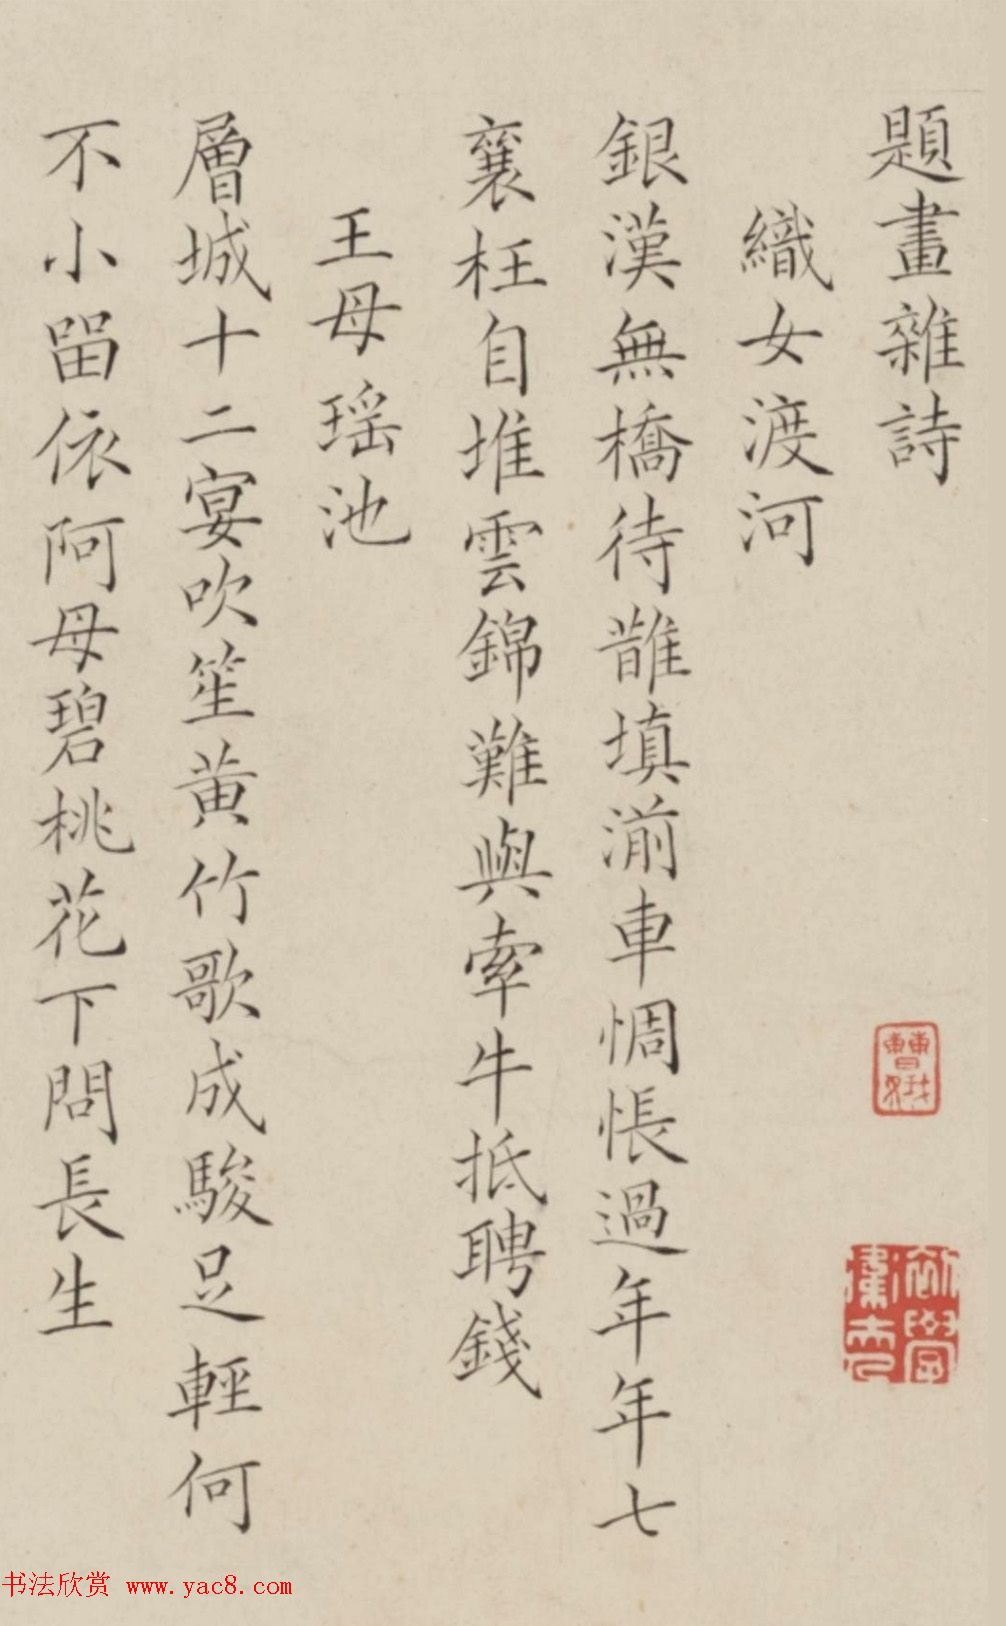 題畫雜詩
織女渡河
銀漢無橋待鵲填湔車惆悵過年年七
襄枉自堆雲錦難與牽牛抵聘錢
王母瑶池
層城十二宴吹笙黄竹歌成駿足輕何
不小留依阿母碧桃花下問長生
书法欣赏 www.yac8.com